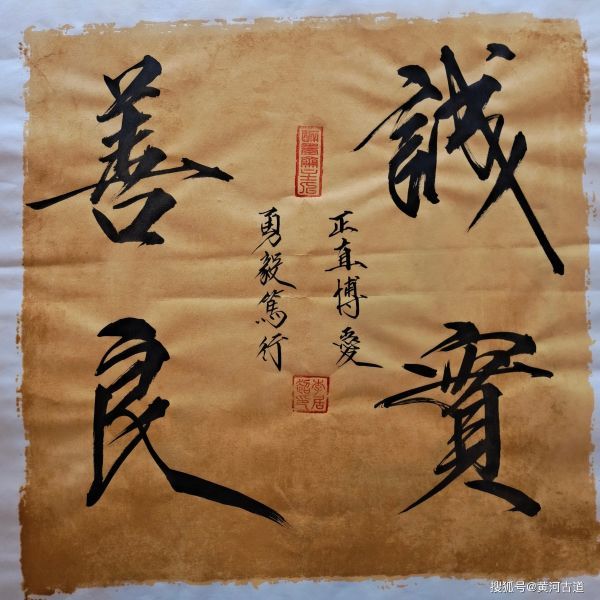 誠實
善良
正直博愛
勇毅篤行
搜狐号@黄河古道